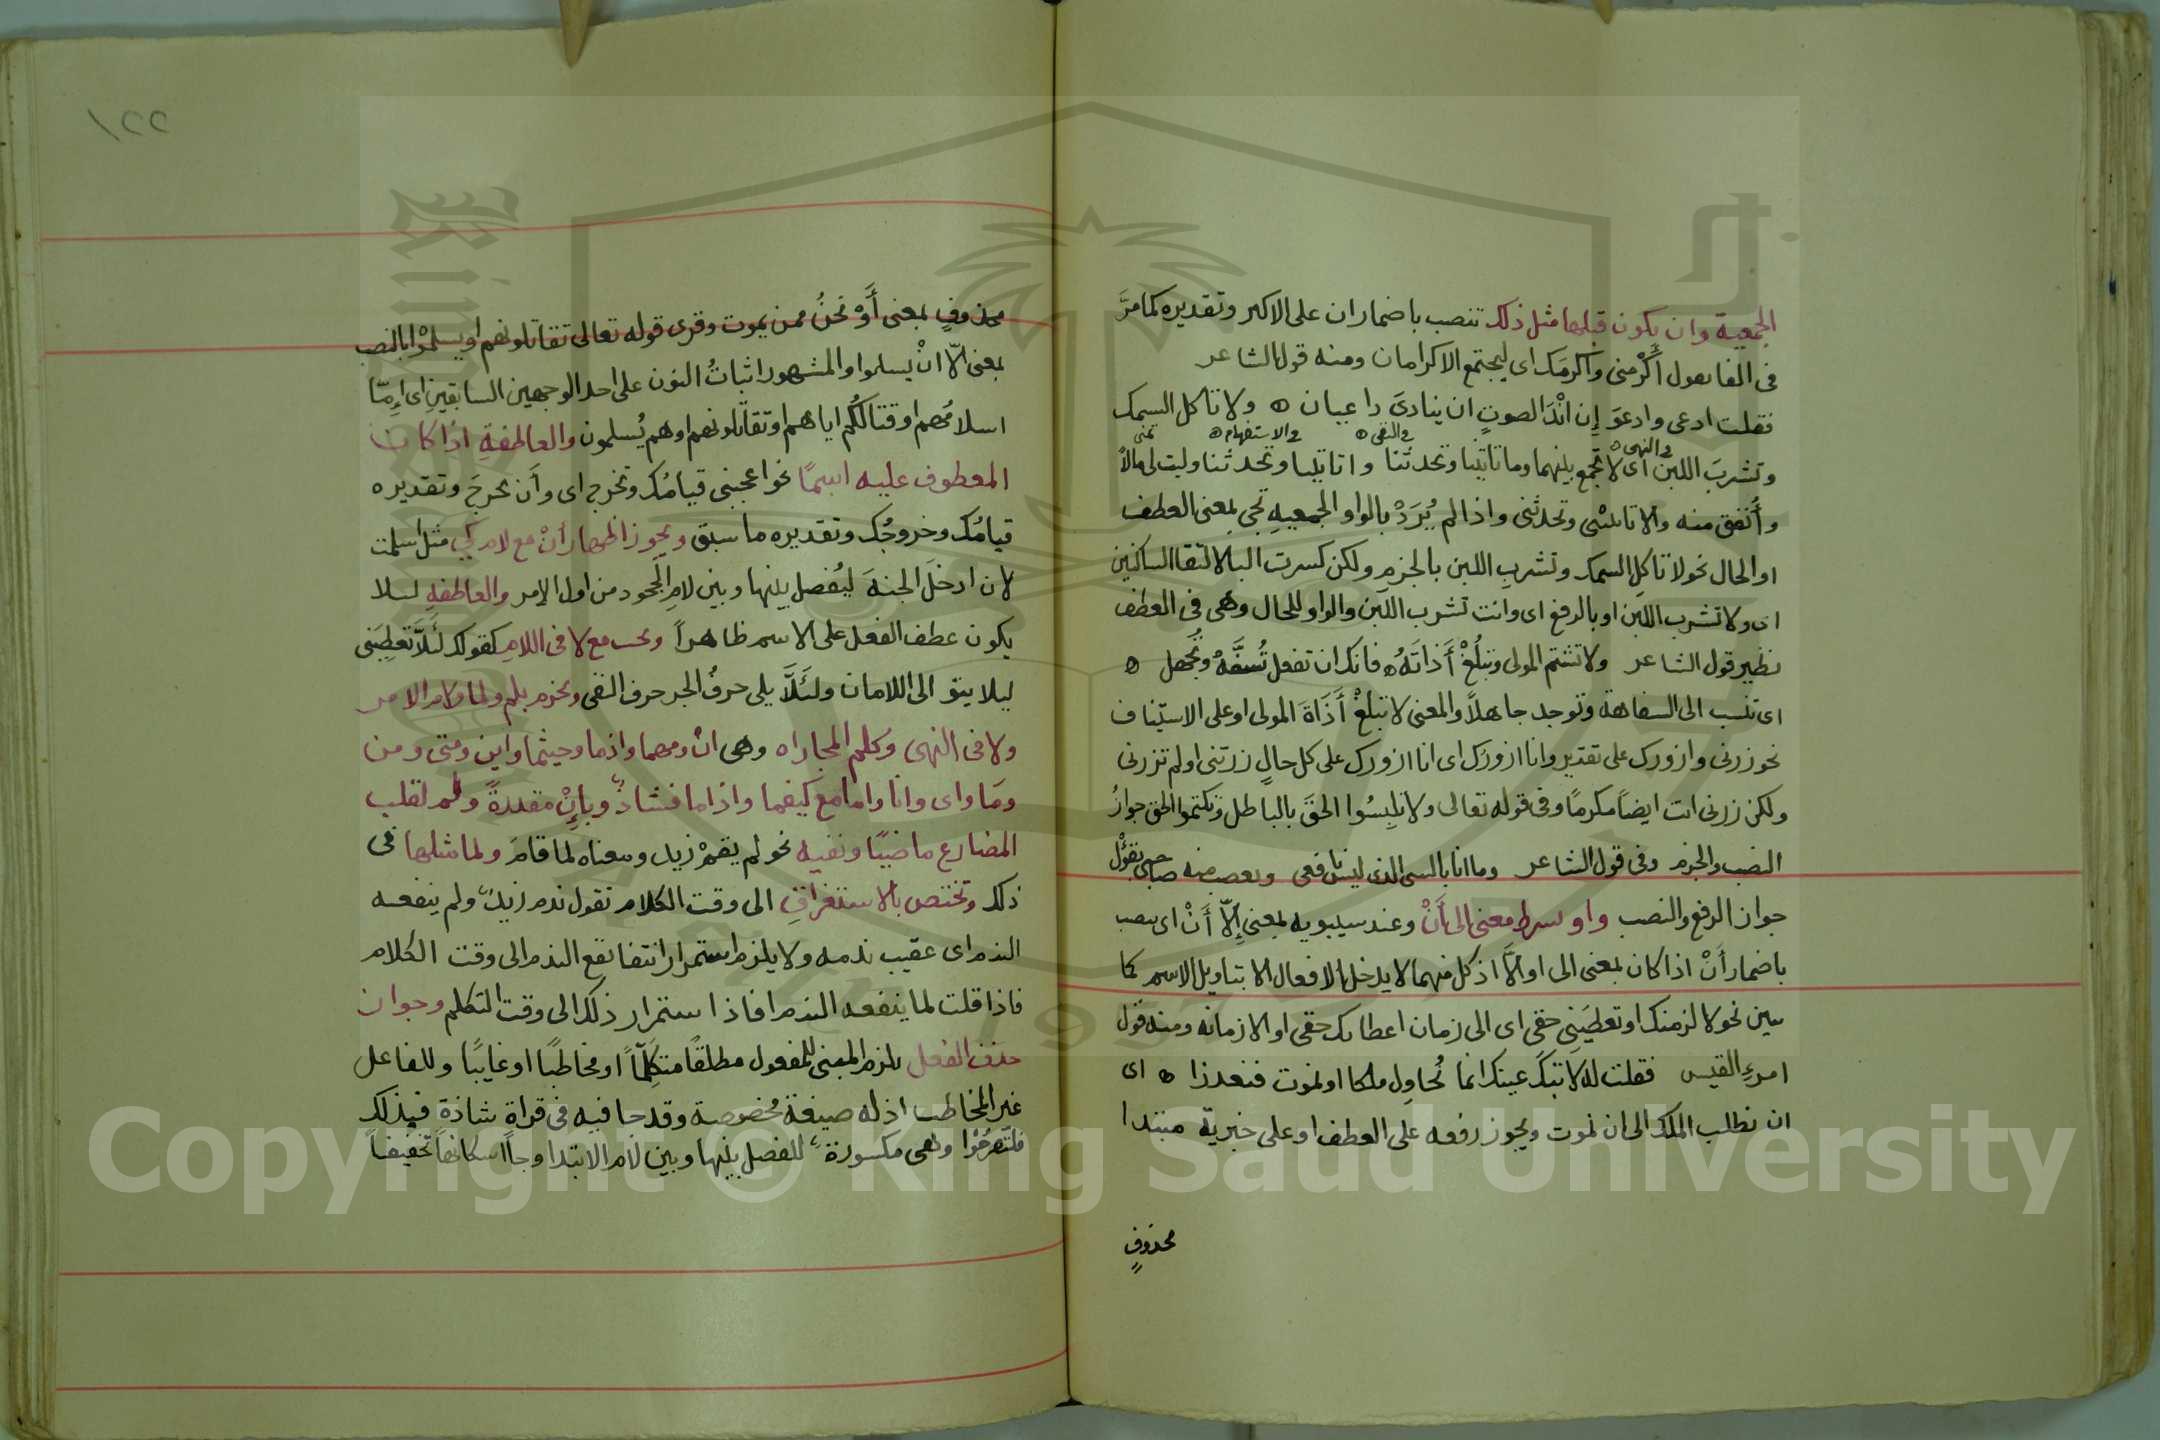 الجمعية وان يكون قبلها مثل ذلك تنصب باضمار ان على الاكثر وتقديره كما مرَّ
في الفا يعول أَكْرِمْني وأكرمَك اى ليجتمع الاكرامان ومنه قول الشاعر
فقلت ادعى وادعوَ إن اَنْدَا لصوتٍ ان ينادىَ داعيان ولا تاكل السمك
في النهى في النفى في الاستفهام تمنى
وتشربَ اللبن اى لا تجمع بينهما وما تاتينا وتحدثنا واتاتينا وتحدثنا وليت لى مالاً
وأُنفق منه والا تاتينى وتحدثنى واذا لم يُرَدْ بالواو الجمعيةِ تجى بمعنى العطف
او الحال نحو لا تاكلِ السمك وتشربِ اللبن بالجزمِ ولكن كسرت البا لالتقا الساكنين
اى ولا تشرب اللبن او بالرفع اى وانت تشرب اللبن والواو للحال وهى فى العطف
نظير قول الشاعر ولا تشتم المولى وتبلُغْ أَذاتَهُ فانك ان تفعل تُسَفَّهْ وتُجهل
اى تنسب الى السفاهة وتوجد جاهلاً والمعنى لا تبلغْ أَذَاةَ المولى او على الاستيناف
نحو زرنى وازورك على تقدير وانا ازورك اى انا ازورك على كل حالٍ زرتنى او لم تزرنى
ولكن زرنى انت ايضاً مكرمًا وفى قوله تعالى ولا تلبِسُوا الحقَ بالباطل وتكتموا الحق جوازُ
النصب والجزم وفى قول الشاعر وما انا بالشى الذى ليس نافعى ويغضب منه صاحبى بقؤل
جواز الرفع والنصب واو بشرط معنى الى أَنْ وعند سيبويه بمعنى إِلاّ أَنْ اى ينصب
باضمار أَنْ اذا كان بمعنى الى او إلاَّ اذ كل منهما لا يدخل الافعال الا بتاويل الاسم كما
سبق نحو لالزمنك او تعطيَنِى حقى اى الى زمان اعطائك حقى او الا زمانه ومنه قول
امرءِ القيس فقلت له لا تبكِ عينك انما نُحاوِل ملكا او نموت فنعذرا اى
ان نطلب الملك الى ان نموت ويجوز رفعه على العطف او على خبرية مبتدا
محذوفٍ
١٢٢
محذوفٍ بمعنى أَوْ نحنُ ممن يموت وقرى قوله تعالى تقاتلونهم او يسلمُوا بالنصب
بمعنى الاّ انْ يسلموا والمشهور اثباتُ النون على احد الوجهين السابقين اى إِمّا
اسلامُهم او قتالكُم اياهم او تقاتلونهم او هم يُسلمون والعاطفةِ اذا كان
المعطوف عليه اسمًا نحو اعجبنى قيامُك وتخرج اى وأَن تخرجَ وتقديره
قيامُك وخروجُك وتقديره ما سبق ويجوز اظهار أنْ مع لام كي مثل اسلمت
لان ادخلَ الجنةَ ليُفصل بينها وبين لامِ الجحود من اول الامر والعاطفةِ ليلا
يكون عطف الفعل على الاسم ظاهراً ويجب مع لا فى اللامِ كقولك لئَلاَّ تعطِيَنى
ليلا يتوالى اللامان ولئَلاَّ يلى حرفُ الجر حرف النفى وتجزم بلم ولما ولام الامر
ولا فى النهى وكلم المجاراه وهى ان ومهما واذما وحيثما واين ومتى ومن
ومَا واى وانا واما مع كيفما واذا ما فشاذٌ وبإِنْ مقدرةً ولم لقلب
المضارع ماضيًا ونفيه نحو لم يقمْ زيد ومعناه لما قامَ ولما مثلها فى
ذلك وتختص بالاستغراقِ الى وقت الكلام تقول ندم زيدٌ ولم ينفعه
الندم اى عقيب ندمه ولا يلزم استمرار انتفا نفع الندم الى وقت الكلام
فاذا قلت لما ينفعه الندم افاد استمرار ذلك الى وقت التكلم وجواز
حذف الفعل يلزم المبنى للمفعول مطلقًا متكلِّمًا او مخاطبًا او غايبًا وللفاعل
غير المخاطب اذ له صيغة مخصوصة وقد جا فيه فى قراةٍ شاذة فبذلك
فلتفرحُوا وهى مكسورة للفصل بينها وبين لام الابتدا وجا اسكانها تخفيفاً
Copyright © King Saud University